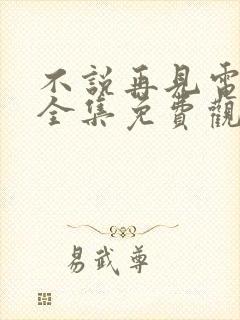 不說再見電
全集免費觀
易武尊